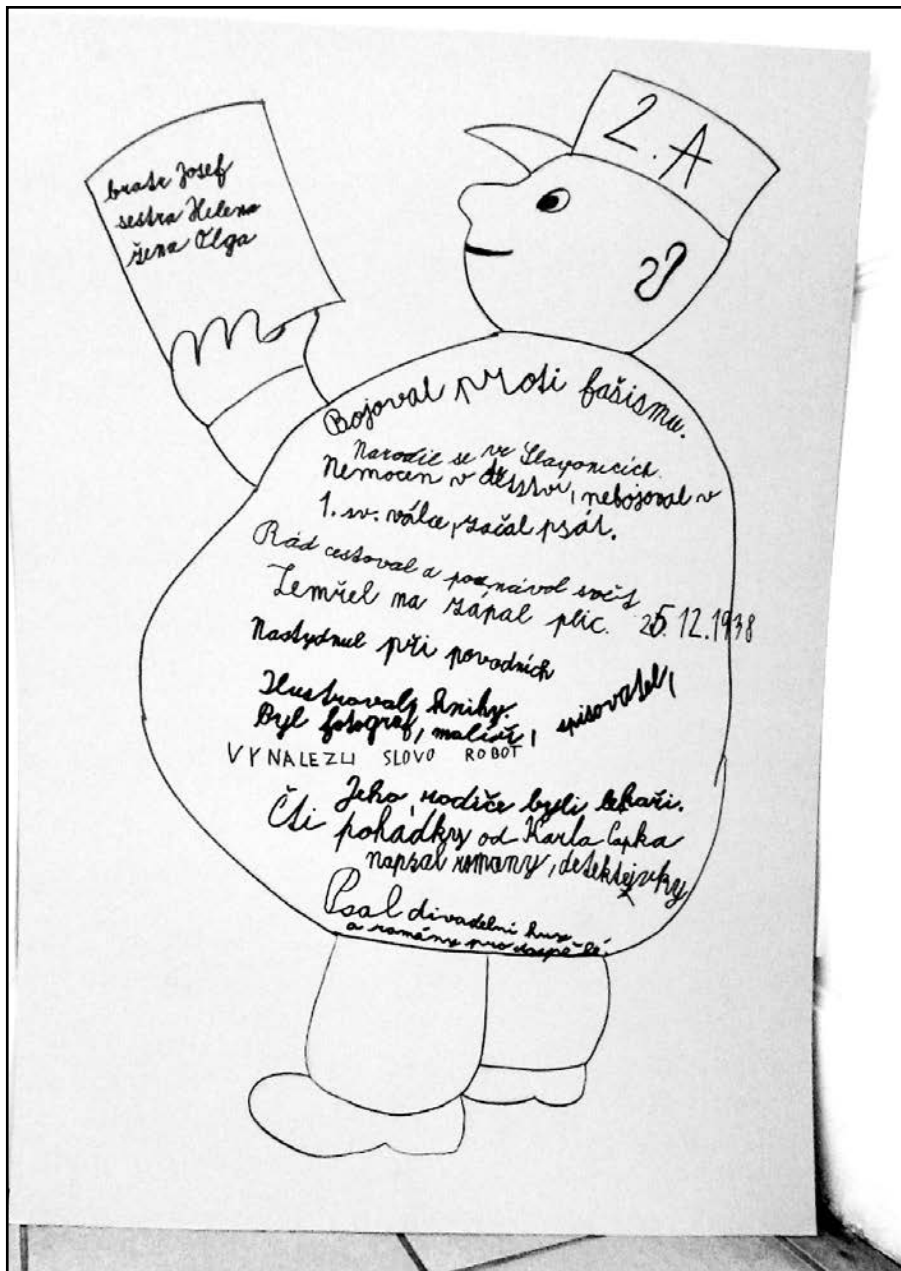 2.A
bratr Josef
sestra Helena
žena Olga
Bojoval proti fašismu.
Narodil se ve Slavonicích.
Nemocen v dětství, nebojoval v
1. sv. válce, začal psát.
Rád cestoval a poznával svět
Zemřel na zápal plic. 25.12.1938
Nastydnul při povodních
Ilustroval knihy.
Byl fotograf, malíř, spisovatel,
VYNALEZLI SLOVO ROBOT
Jeho rodiče byli lékaři.
Čti pohádky od Karla Čapka
napsal romany, detektejvky
Psal divadelní
a romány pro dospělé.